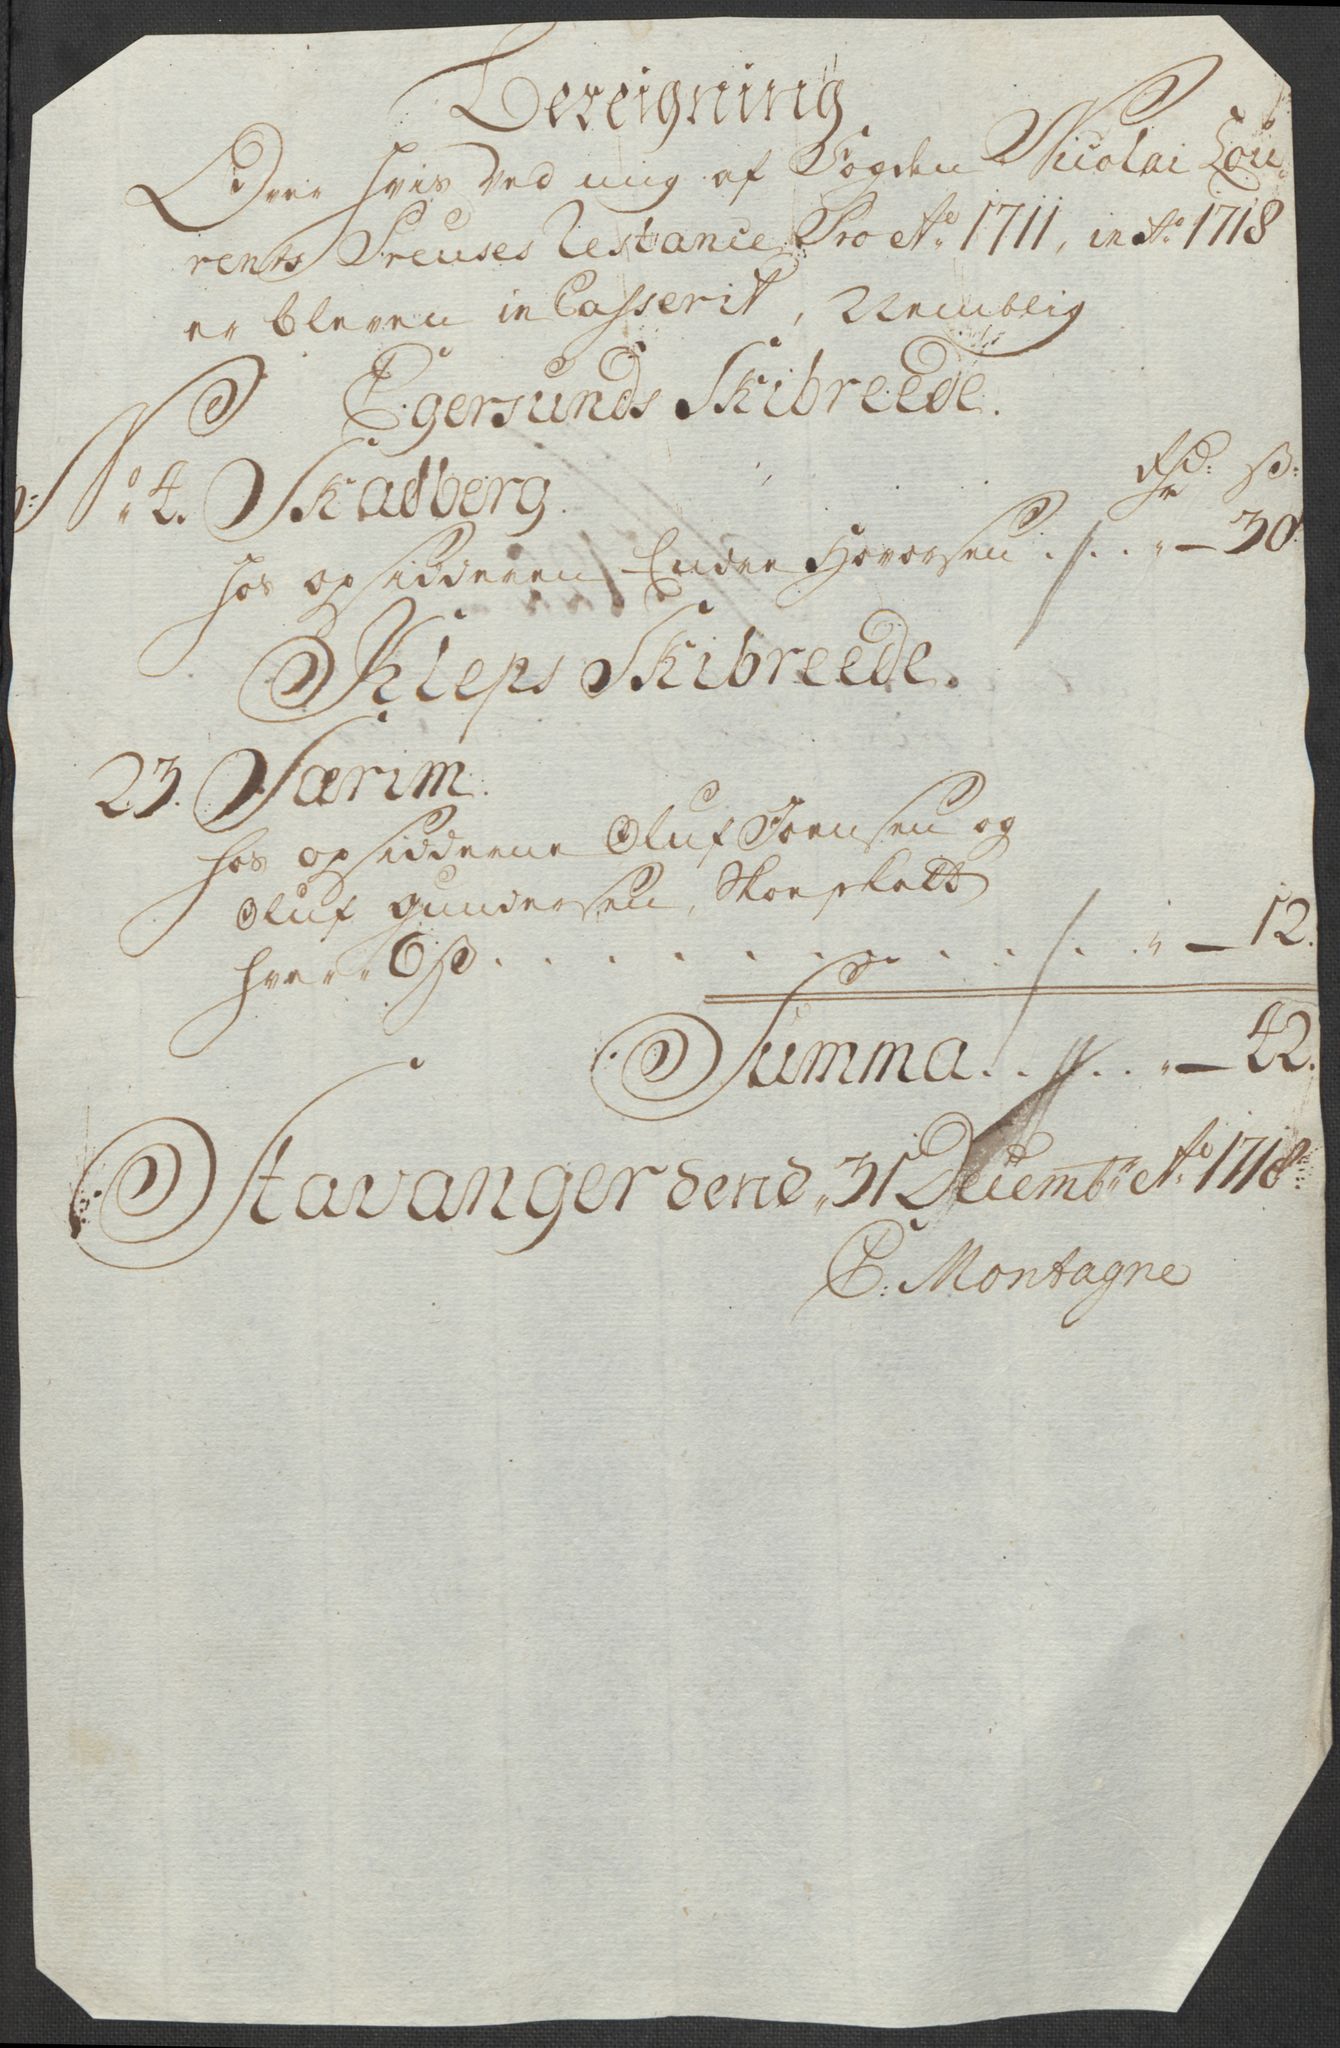 Bereigning
Over hvis ved mig af Fogden Nicolai Lou-
rents Preuses Restance Pro Ao 1711, in Ao 1718
er bleven in Casserit, Nemblig
Egersunds Skibreede.
rdr: ß:
No 4. Skadberg.
hos opsidderen Endre Hovorsen . / . . " — 30
Kleps Skibreede.
23. Særim.
hos opsidderne Oluf Joensen og
Oluf Gundersen, Skoeskatt
hver 6 ß . . . . . . . . . / . . " — 12.
Summa . . // . . " — 42.
Stavanger dend 31 Decembr Ao 1718
C: Montagne